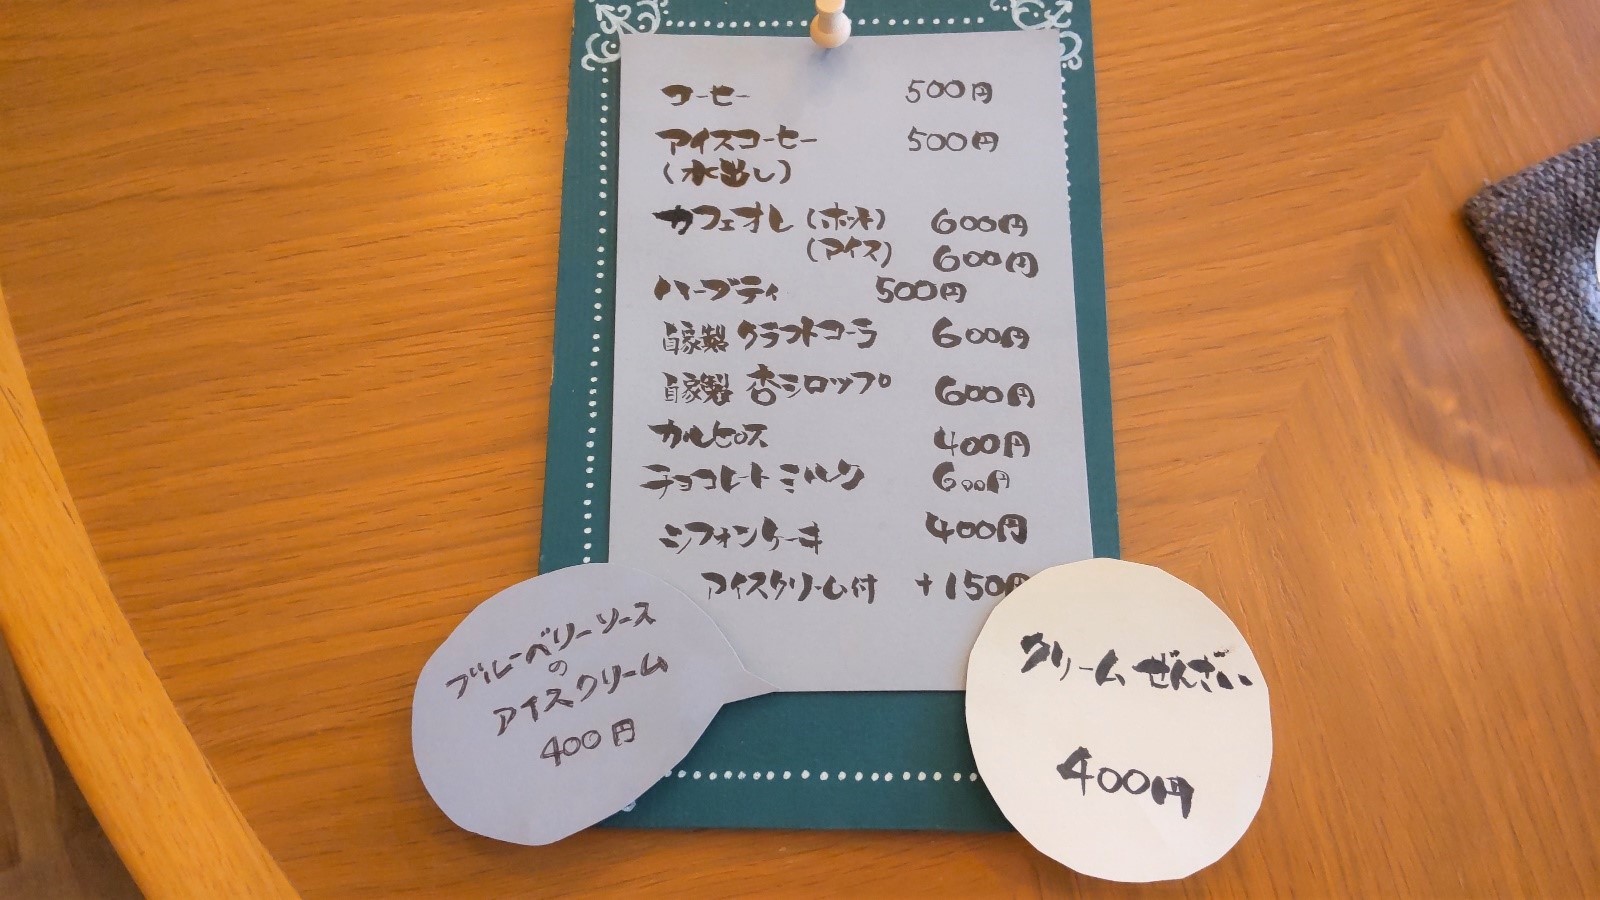 コーヒー 500円
アイスコーヒー 500円
(水出し)
カフェオレ (ホット) 600円
(アイス) 600円
ハーブティ 500円
自家製 クラフトコーラ 600円
自家製 杏シロップ 600円
カルピス 400円
チョコレートミルク 600円
シフォンケーキ 400円
アイスクリーム付 +150円
ブルーベリーソース
の
アイスクリーム
400円
クリームぜんざい
400円